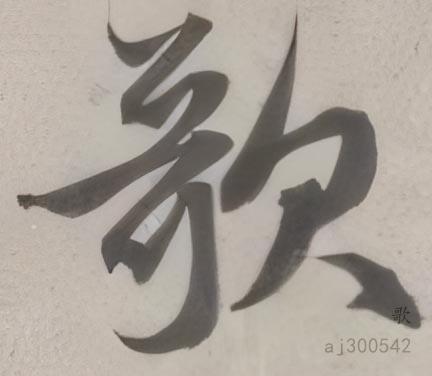 歌
歌
aj300542